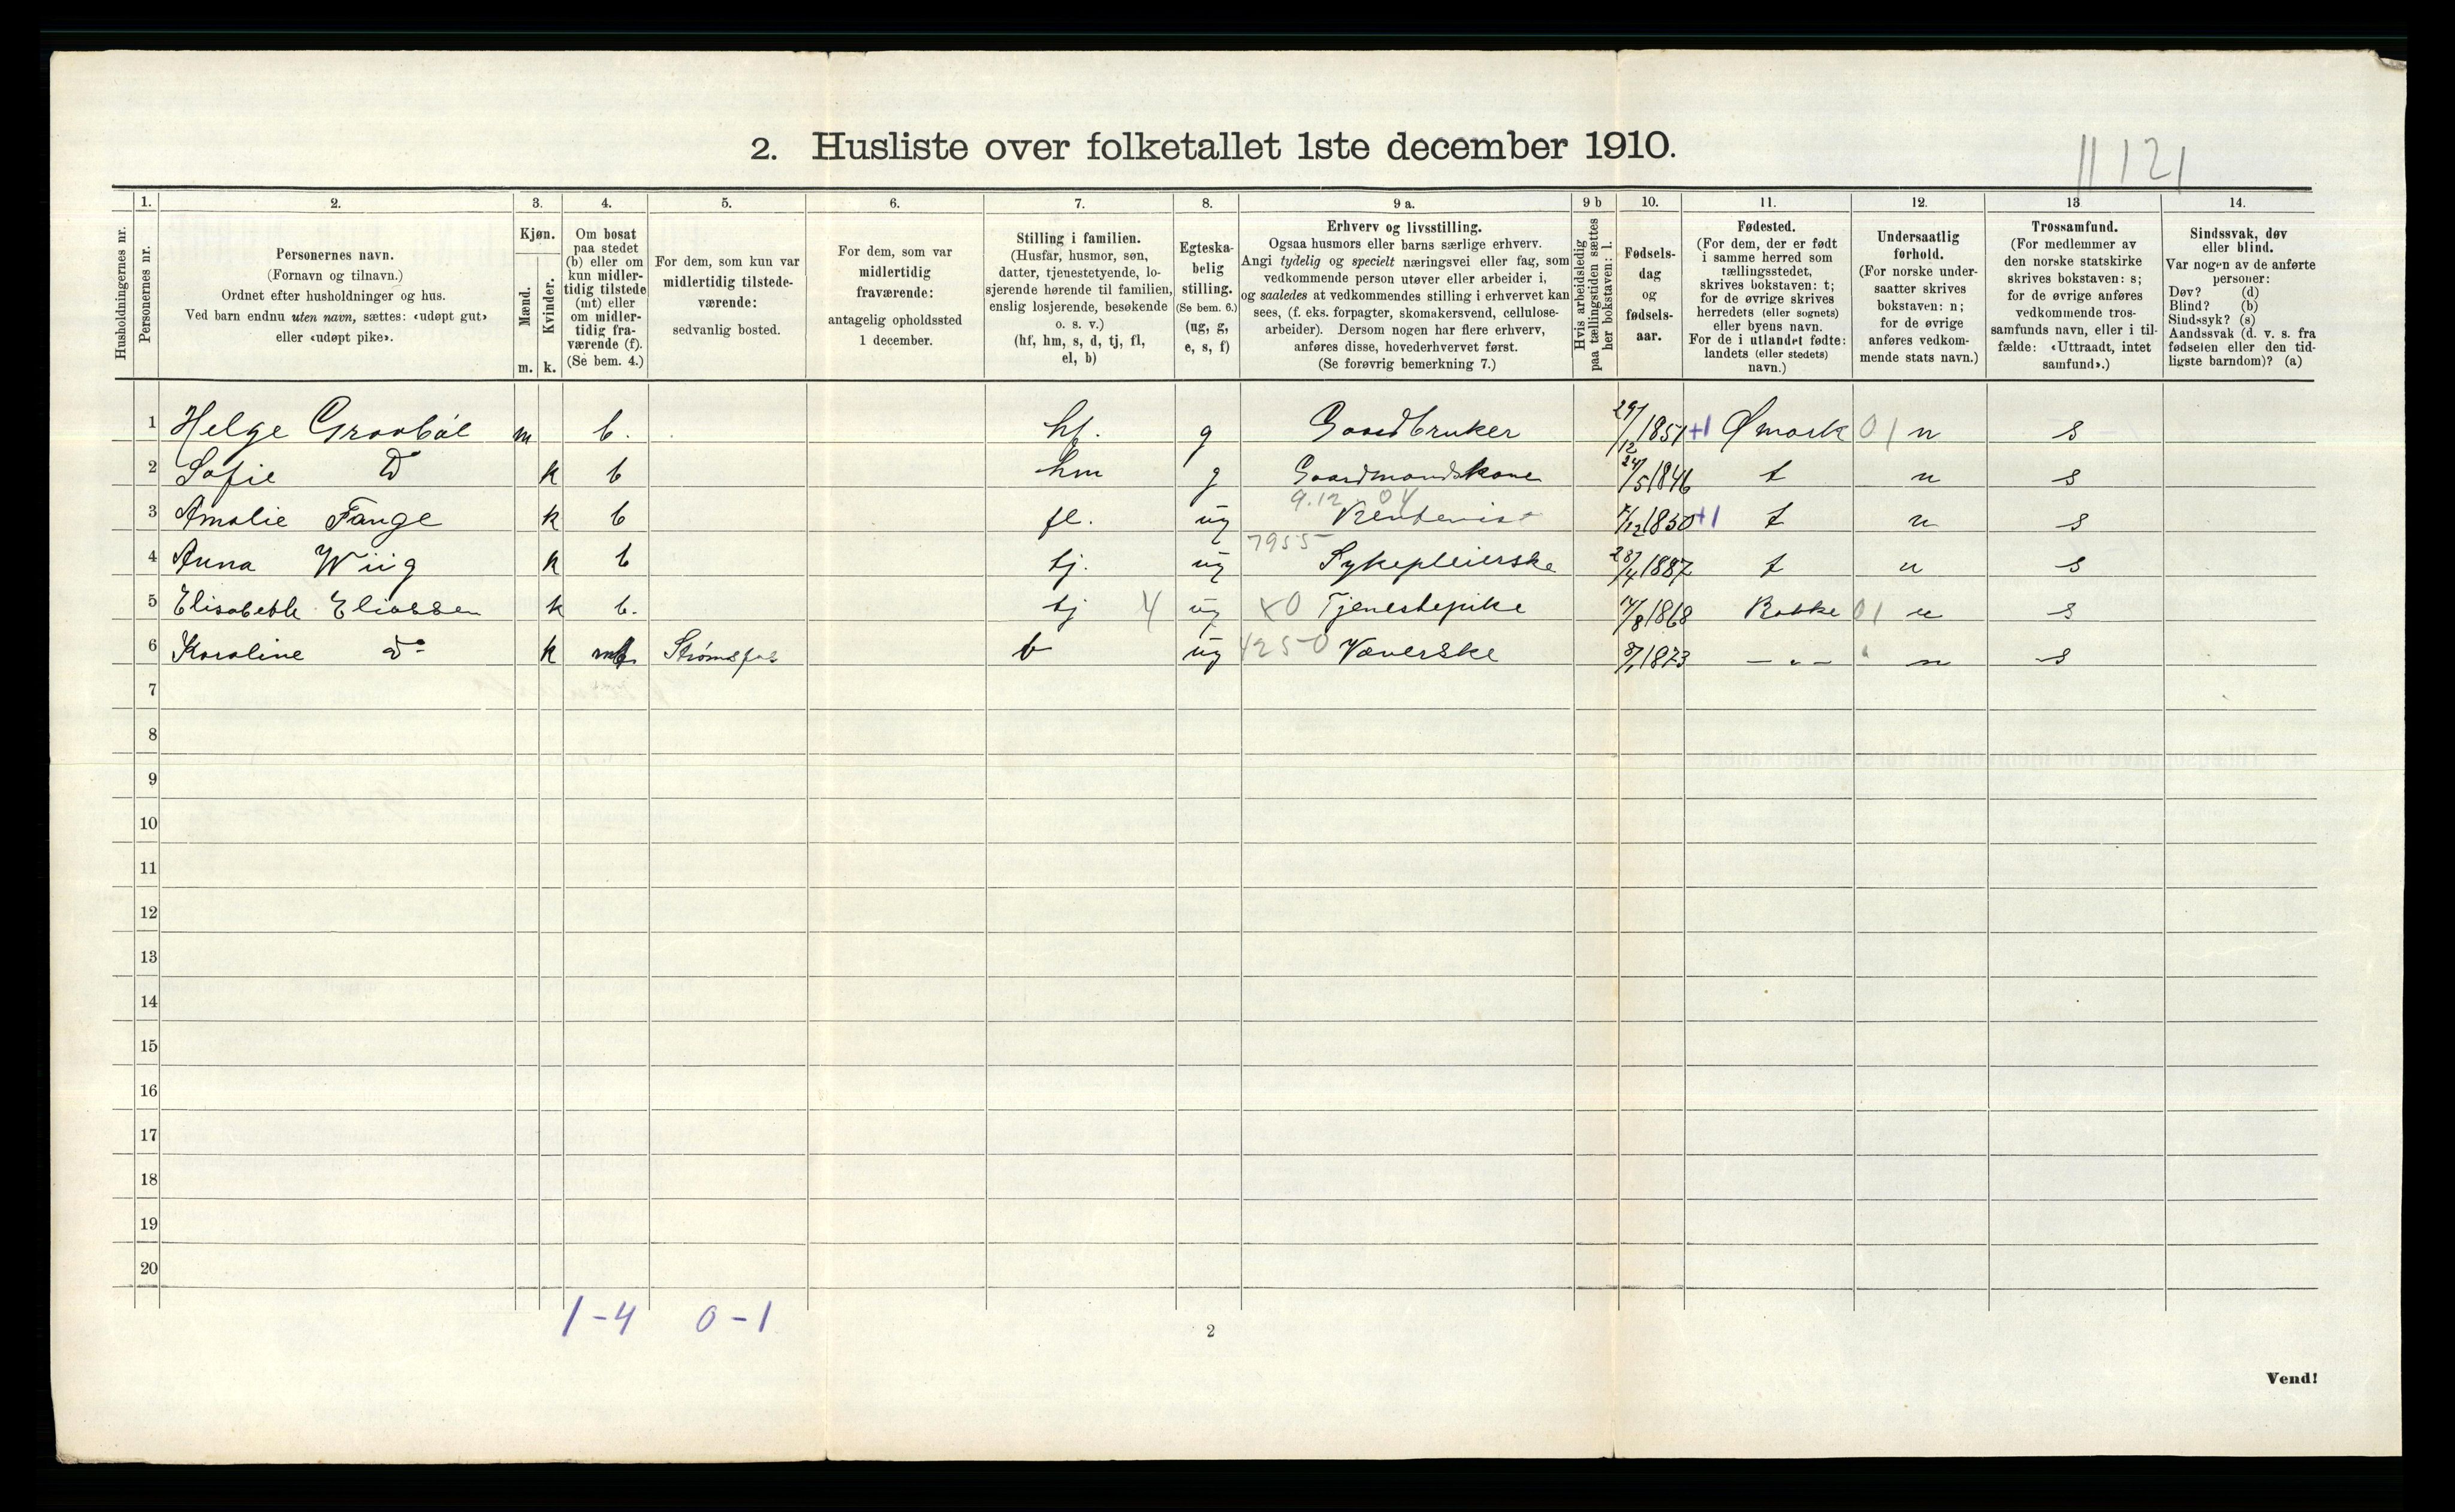 2. Husliste over folketallet 1ste december 1910.
11121
Husholdningernes nr.
1. Personernes nr.
2. Personernes navn.
(Fornavn og tilnavn.)
Ordnet efter husholdninger og hus.
Ved barn endnu uten navn, sættes: «udøpt gut»
eller «udøpt pike».
3. Kjøn.
Mænd. m.
Kvinder. k.
4. Om bosat
paa stedet
(b) eller om
kun midler-
tidig tilstede
(mt) eller
om midler-
tidig fra-
værende (f).
(Se bem. 4.)
5. For dem, som kun var
midlertidig tilstede-
værende:
sedvanlig bosted.
6. For dem, som var
midlertidig
fraværende:
antagelig opholdssted
1 december.
7. Stilling i familien.
(Husfar, husmor, søn,
datter, tjenestetyende, lo-
sjerende hørende til familien,
enslig losjerende, besøkende
o. s. v.)
(hf, hm, s, d, tj, fl,
el, b)
8. Egteska-
belig
stilling.
(Se bem. 6.)
(ug, g,
e, s, f)
9 a. Erhverv og livsstilling.
Ogsaa husmors eller barns særlige erhverv.
Angi tydelig og specielt næringsvei eller fag, som
vedkommende person utøver eller arbeider i,
og saaledes at vedkommendes stilling i erhvervet kan
sees, (f. eks. forpagter, skomakersvend, cellulose-
arbeider). Dersom nogen har flere erhverv,
anføres disse, hovederhvervet først.
(Se forøvrig bemerkning 7.)
9 b Hvis arbeidsledig
paa tællingstiden sættes
her bokstaven: l.
10. Fødsels-
dag
og
fødsels-
aar.
11. Fødested.
(For dem, der er født
i samme herred som
tællingsstedet,
skrives bokstaven: t;
for de øvrige skrives
herredets (eller sognets)
eller byens navn.
For de i utlandet fødte:
landets (eller stedets)
navn.)
12. Undersaatlig
forhold.
(For norske under-
saatter skrives
bokstaven: n;
for de øvrige
anføres vedkom-
mende stats navn.)
13 Trossamfund.
(For medlemmer av
den norske statskirke
skrives bokstaven: s;
for de øvrige anføres
vedkommende tros-
samfunds navn, eller i til-
fælde: «Uttraadt, intet
samfund».)
14. Sindssvak, døv
eller blind.
Var nogen av de anførte
personer:
Døv? (d)
Blind? (b)
Sindssyk? (s)
Aandssvak (d. v. s. fra
fødselen eller den tid-
ligste barndom)? (a)
1 Helge Gravbøl m b. hf. g Gaardbruker 29/12 1851 +1 Ømark 01 n s
2 Sofie Do k b hm g Gaardmandskone 24/5 1846 t n s
9.12 04
3 Amalie Fange k b fl. ug Rentenist 7/12 1850 +1 t n s
7955
4 Anna Wiig k b tj. ug Sykepleierske 28/4 1887 t n s
5 Elisabeth Eliassen k b. tj 4 ug x0 Tjenestepike 14/8 1868 Rakke 01 n s
6 Karoline do k mt Strømsfos b ug 4250 Væverske 1873 - " - " n s
7
8
9
10
11
12
13
14
15
16
17
18
19
20
1-4 0-1
2
Vend!